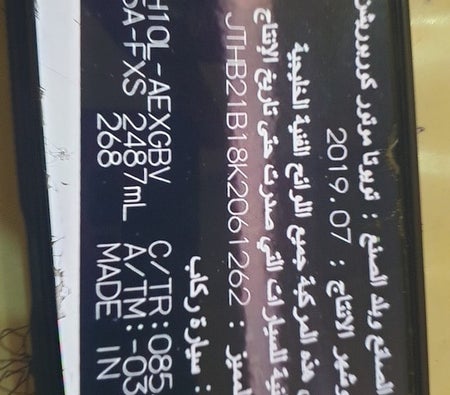 الصانع وبلد الصنع : تويوتا موتور كوربوريشن
وشهر الإنتاج : 2019.07
هذه المركبة جميع اللوائح الفنية الخليجية
للسيارات التي صدرت حتى تاريخ الإنتاج
المميز : JTHB21B18K2061262
: سيارة ركاب
H10L-AEXGBV C/TR:085
5A-FXS 2487mL A/TM:-03
268 MADE IN